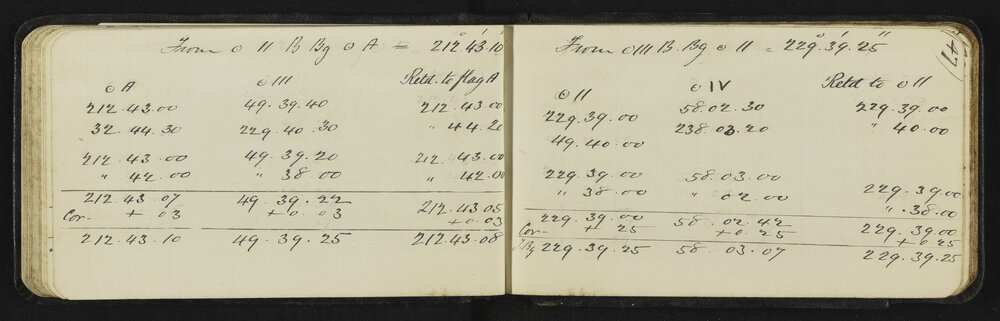 From ⊙ II B Bg ⊙ A = 212°43'10"
⊙ A ⊙ III Retd. to flag A
212.43.00 49.39.40 212.43.00
32.44.30 229.40.30 " 44.20
212.43.00 49.39.20 212.43.00
" 42.00 " 38.00 " 42.00
212.43.07 49.39.22 212.43.05
Cor- + 03 +0.03 +0.03
212.43.10 49.39.25 212.43.08
47)
From ⊙ III B. Bg ⊙ II = 229°.39'.25"
⊙ II ⊙ IV Retd to ⊙ II
229.39.00 58.02.30 229.39.00
49.40.00 238.03.20 " 40.00
229.39.00 58.03.00 229.39.00
" 38.00 " 02.00 " .38.00
229.39.00 58.02.42 229.39.00
Cor- + 25 +0.25 +0.25
Bg 229.39.25 58.03.07 229.39.25